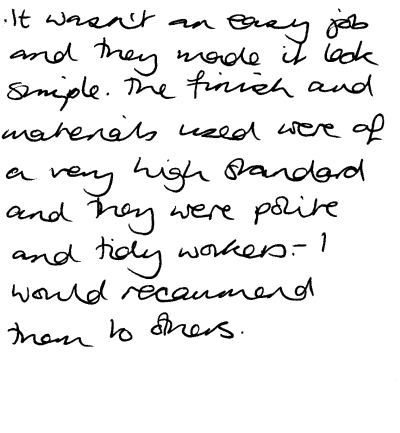 .It wasn't an easy job
and they made it look
simple. The finish and
materials used were of
a very high standard
and they were polite
and tidy workers.- I
would recommend
them to others.